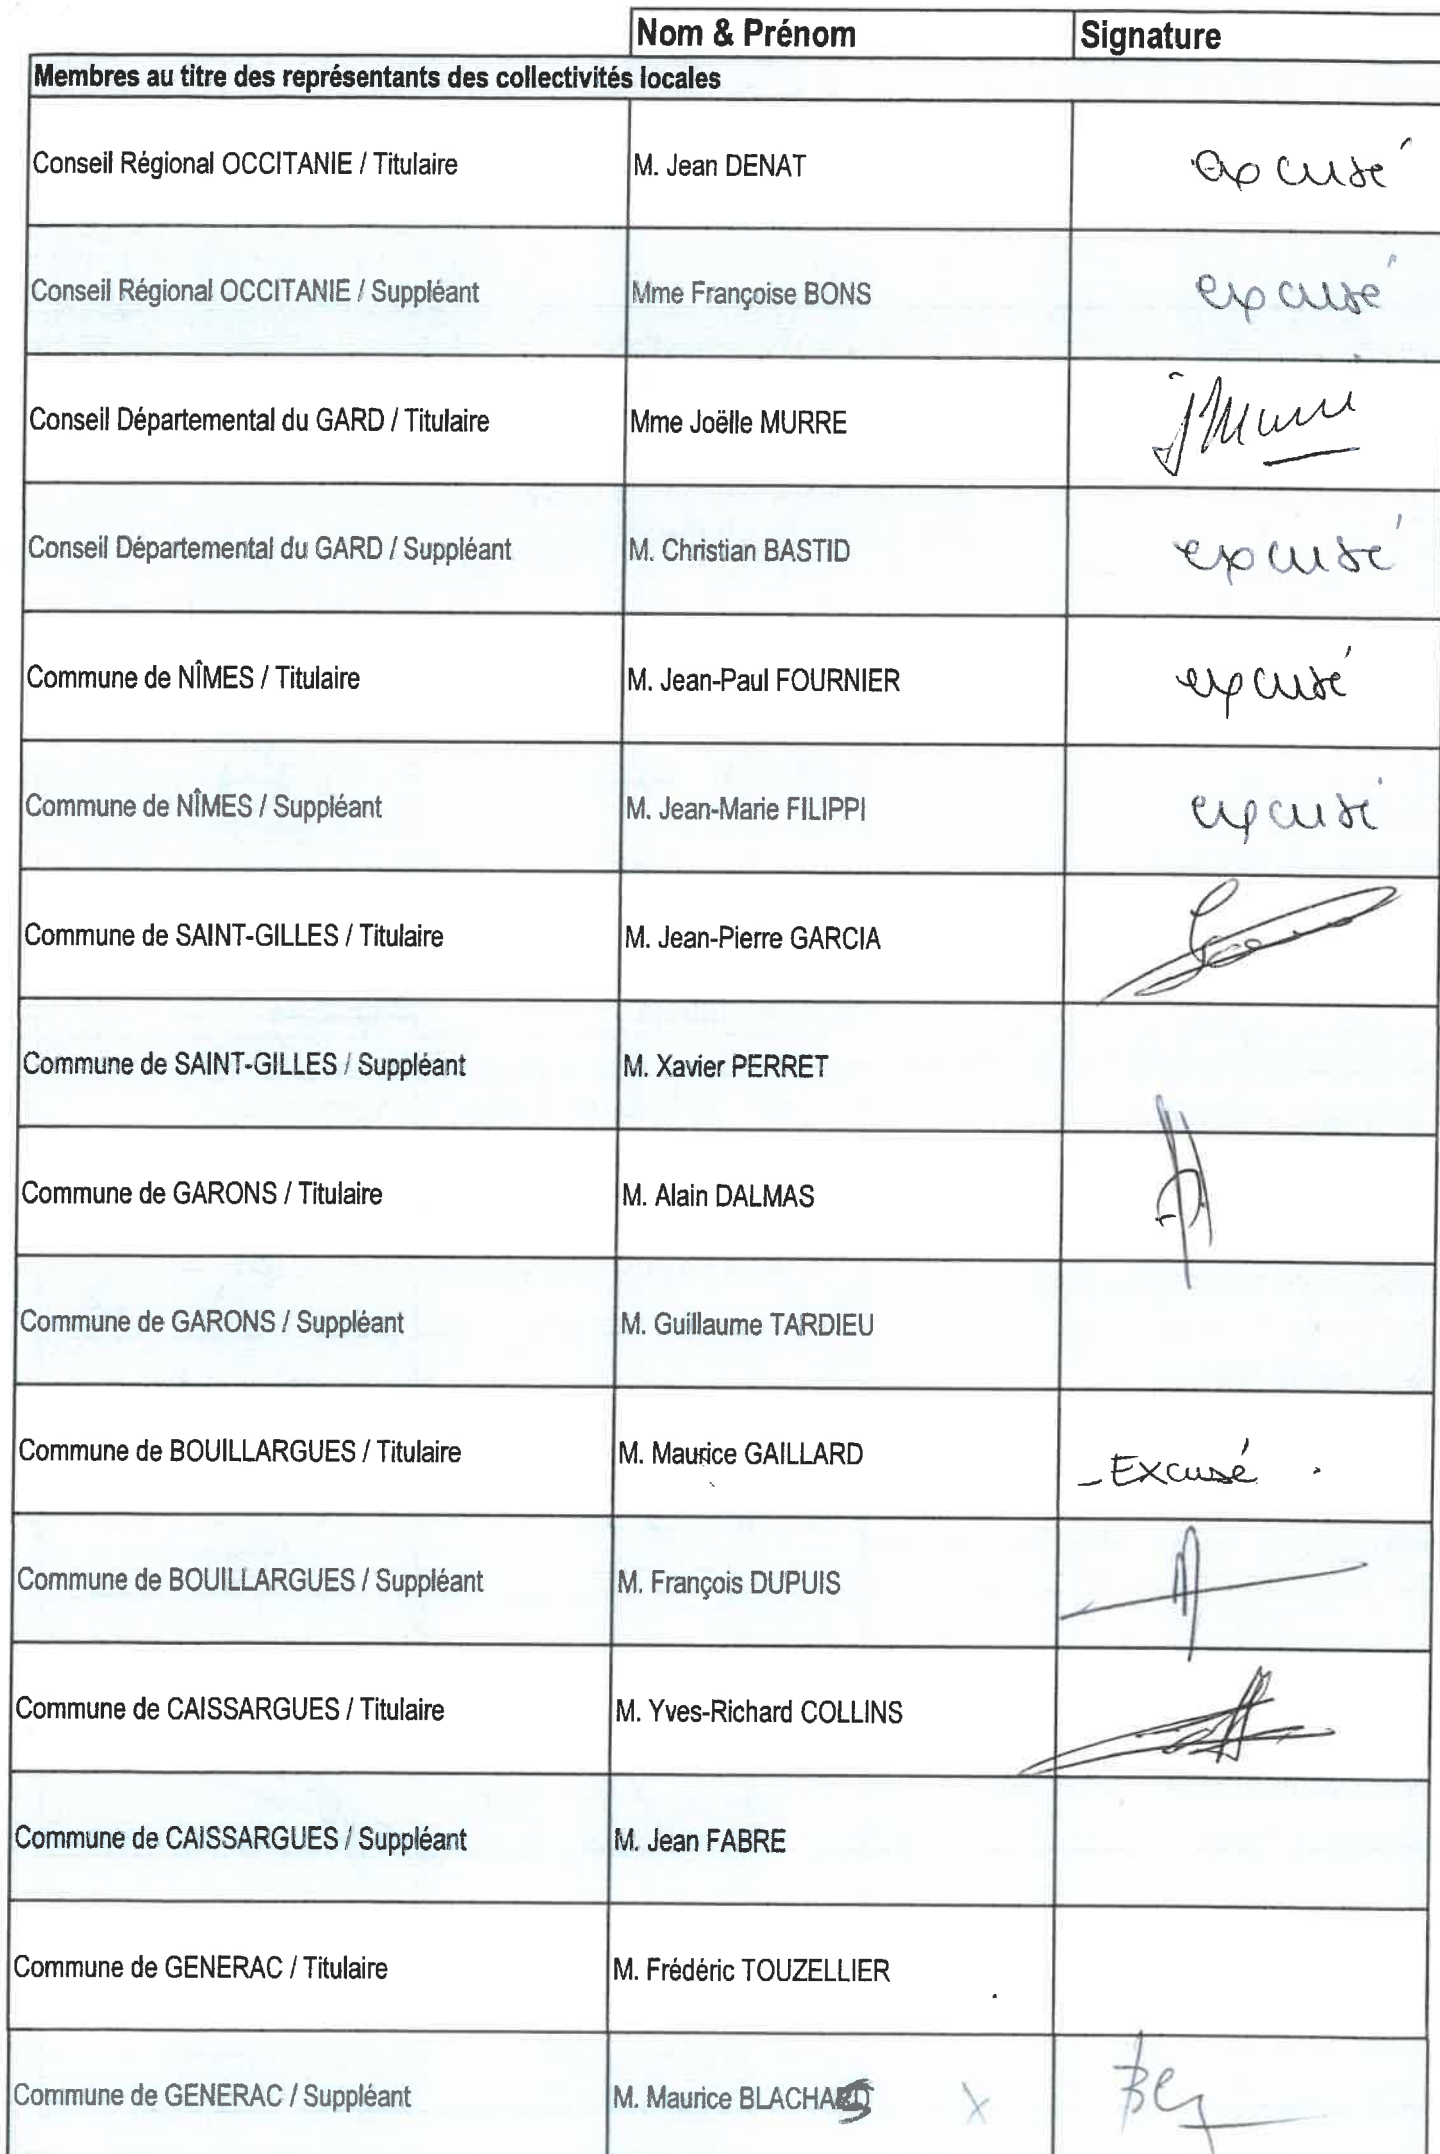 Nom & Prénom Signature
Membres au titre des représentants des collectivités locales
Conseil Régional OCCITANIE / Titulaire M. Jean DENAT excusé
Conseil Régional OCCITANIE / Suppléant Mme Françoise BONS excusé
Conseil Départemental du GARD / Titulaire Mme Joëlle MURRE JMurre
Conseil Départemental du GARD / Suppléant M. Christian BASTID excusé
Commune de NÎMES / Titulaire M. Jean-Paul FOURNIER excusé
Commune de NÎMES / Suppléant M. Jean-Marie FILIPPI excusé
Commune de SAINT-GILLES / Titulaire M. Jean-Pierre GARCIA
Commune de SAINT-GILLES / Suppléant M. Xavier PERRET
Commune de GARONS / Titulaire M. Alain DALMAS
Commune de GARONS / Suppléant M. Guillaume TARDIEU
Commune de BOUILLARGUES / Titulaire M. Maurice GAILLARD - Excusé .
Commune de BOUILLARGUES / Suppléant M. François DUPUIS
Commune de CAISSARGUES / Titulaire M. Yves-Richard COLLINS
Commune de CAISSARGUES / Suppléant M. Jean FABRE
Commune de GENERAC / Titulaire M. Frédéric TOUZELLIER
Commune de GENERAC / Suppléant M. Maurice X